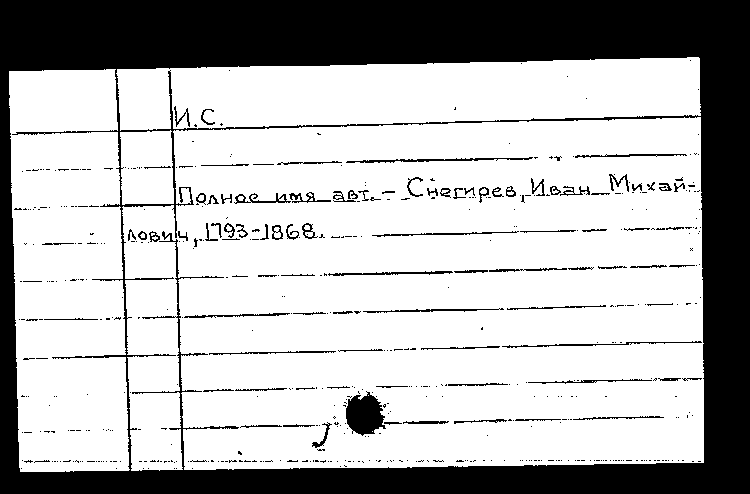 И.С.
Полное имя авт. – Снегирев, Иван Михай-
лович, 1793-1868.